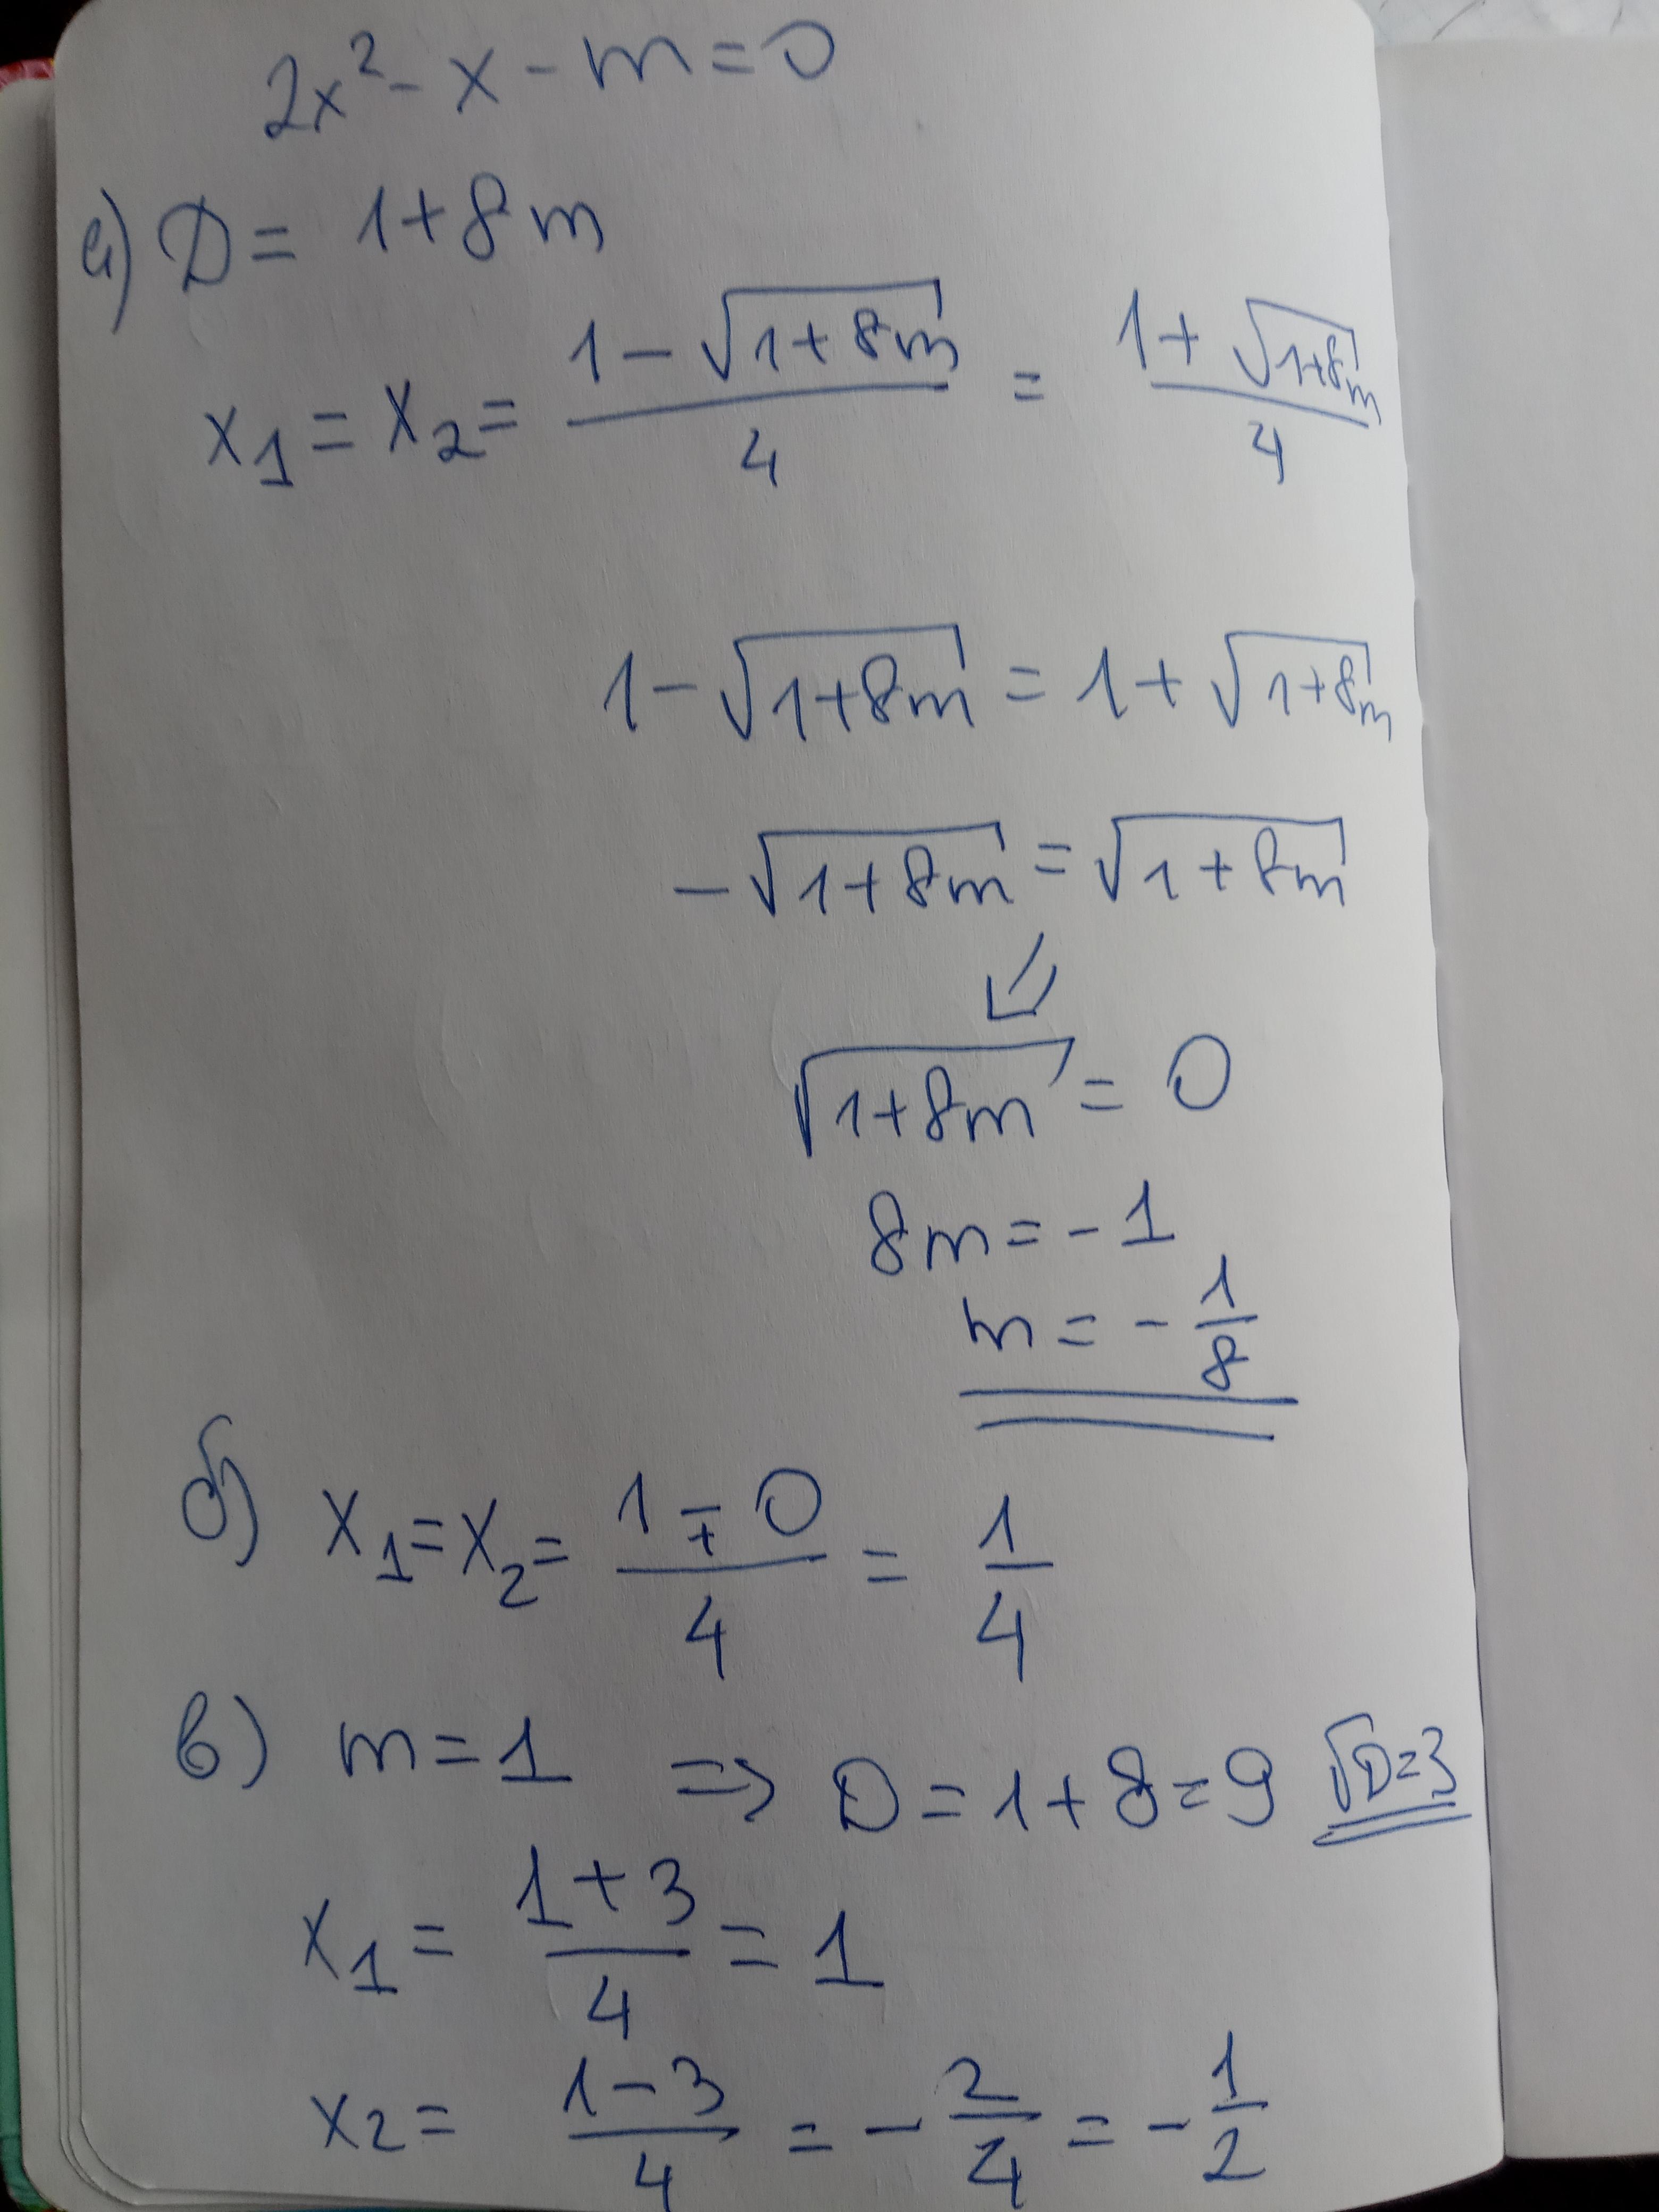 2x² - x - m = 0
а) D = 1 + 8m
x₁ = x₂ = (1 - √(1+8m))/4 = (1 + √(1+8m))/4
1 - √(1+8m) = 1 + √(1+8m)
-√(1+8m) = √(1+8m)
⇙
√(1+8m) = 0
8m = -1
m = -1/8
б) x₁ = x₂ = (1 ∓ 0)/4 = 1/4
в) m = 1 ⇒ D = 1 + 8 = 9 √D = 3
x₁ = (1 + 3)/4 = 1
x₂ = (1 - 3)/4 = -2/4 = -1/2